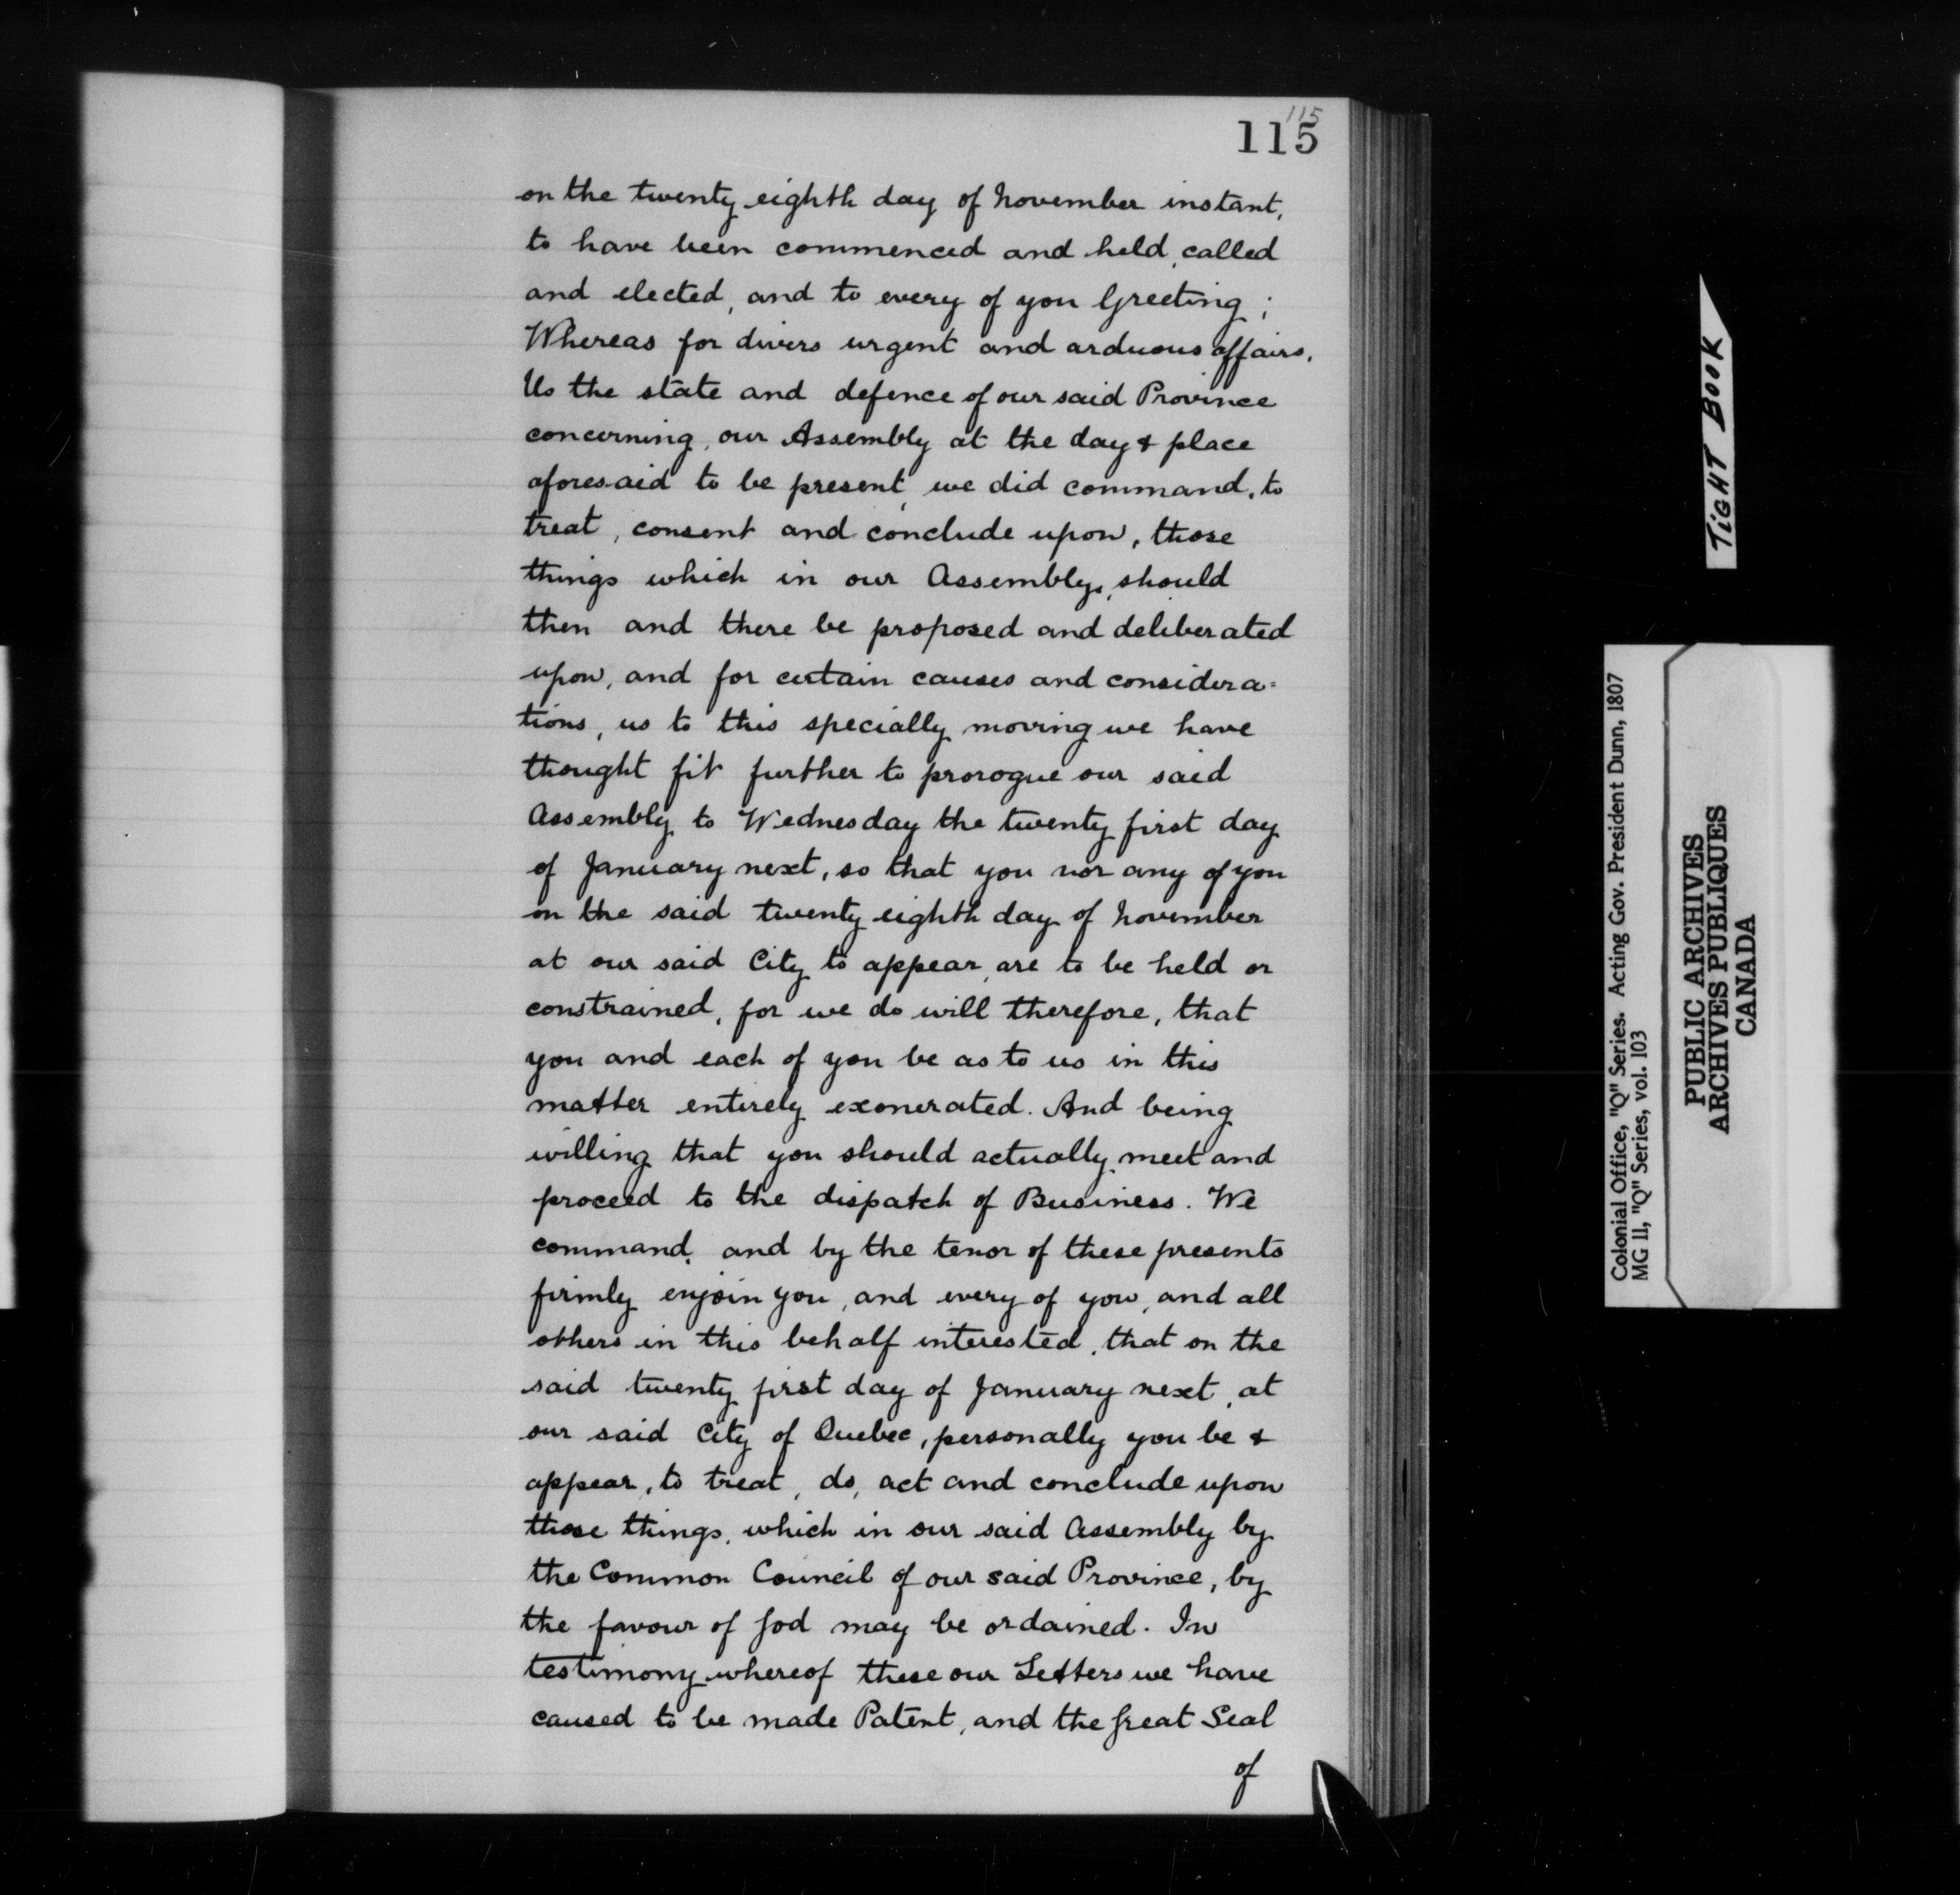 115
115
on the twenty eighth day of November instant,
to have been commenced and held, called
and elected, and to every of you Greeting;
Whereas for divers urgent and arduous affairs,
Us the state and defence of our said Province
concerning, our Assembly at the day & place
aforesaid to be present, we did command, to
treat, consent and conclude upon, those
things which in our Assembly, should
then and there be proposed and deliberated
upon, and for certain causes and considera=
tions, us to this specially moving we have
thought fit further to prorogue our said
Assembly to Wednesday the twenty first day
of January next, so that you nor any of you
on the said twenty eighth day of November
at our said City to appear, are to be held or
constrained, for we do will therefore, that
you and each of you be as to us in this
matter entirely exonerated. And being
willing that you should actually meet and
proceed to the dispatch of Business. We
command, and by the tenor of these presents
firmly enjoin you, and every of you, and all
others in this behalf interested, that on the
said twenty first day of January next, at
our said City of Quebec, personally you be &
appear, to treat, do, act and conclude upon
those things, which in our said Assembly by
the Common Council of our said Province, by
the favour of God may be ordained. In
testimony whereof these our Letters we have
caused to be made Patent, and the Great Seal
of
TiGHT BOOK
Colonial Office, "Q" Series. Acting Gov. President Dunn, 1807
MG 11, "Q" Series, vol. 103
PUBLIC ARCHIVES
ARCHIVES PUBLIQUES
CANADA